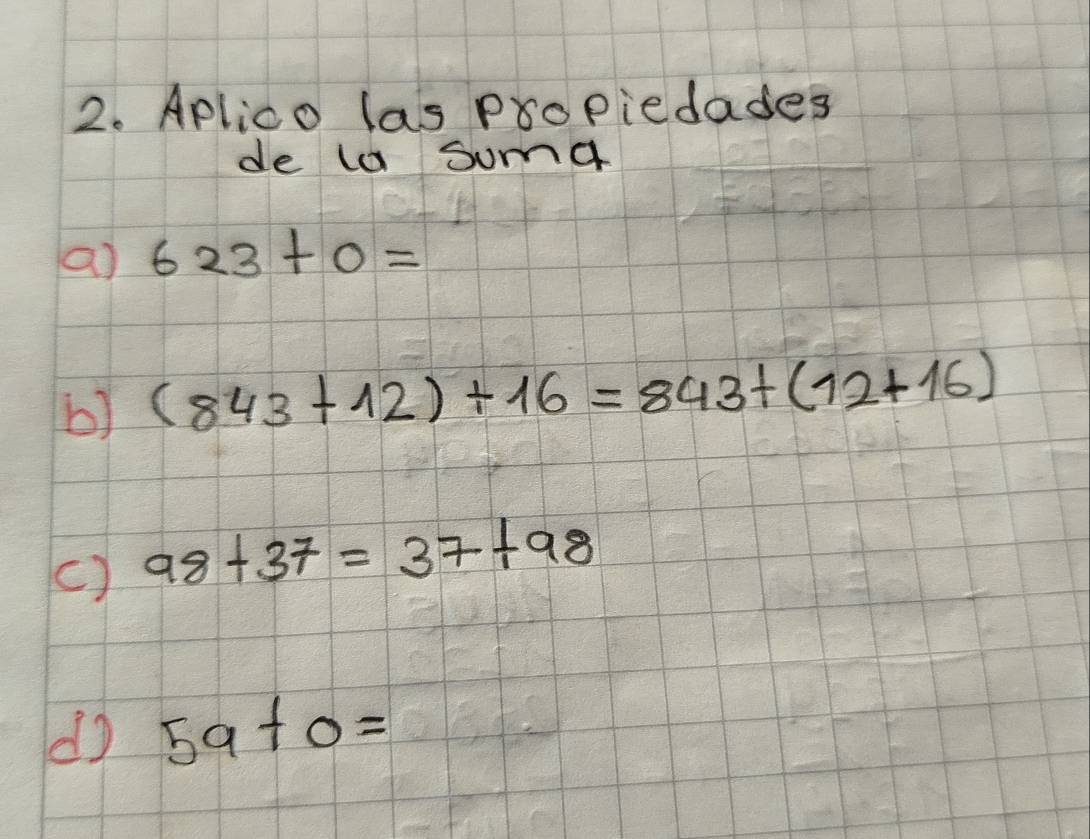 2. Aplico las propiedades
de la suma
a) 623 + 0 =
b) (843 + 12) + 16 = 843 + (12 + 16)
c) 98 + 37 = 37 + 98
d) 59 + 0 =